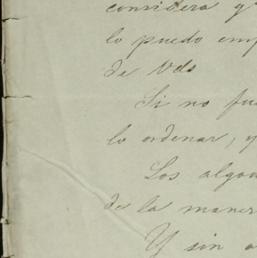 considera q
lo puedo emp
de Vds
Si no fue
lo ordenar, y
Los algod
de la maner
Y sin o